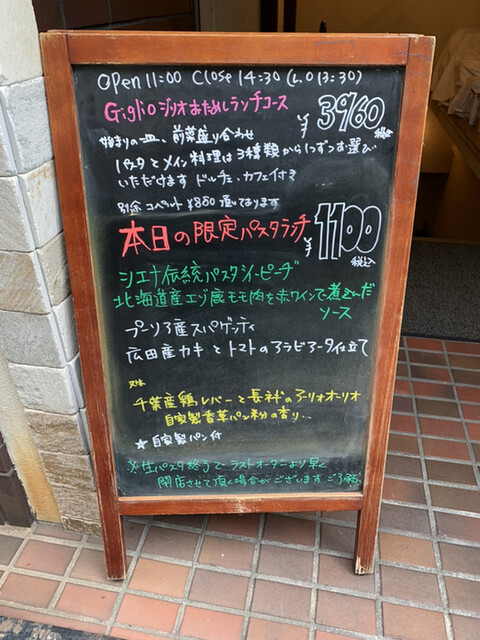 open 11:00 Close 14:30 (L.O 13:30)
Giglioジリオおためしランチコース
¥3960 税込
始まりの一皿、前菜盛り合わせ
パスタとメイン料理は3種類から1つずつお選び
いただけます ドルチェ、カフェ付き
別途コペルト¥880頂いております
本日の限定パスタランチ ¥1100 税込
シエナ伝統パスタ"ピーチ"
北海道産エゾ鹿モモ肉を赤ワインで煮込んだ
ソース
プーリア産スパゲッティ
広田産カキとトマトのアラビアータ仕立て
又は
千葉産鶏レバーと長ネギのアーリオオーリオ
自家製香草パン粉の香り..
☆自家製パン付
※生パスタ終了で ラストオーダーより早く
閉店させて頂く場合がございます